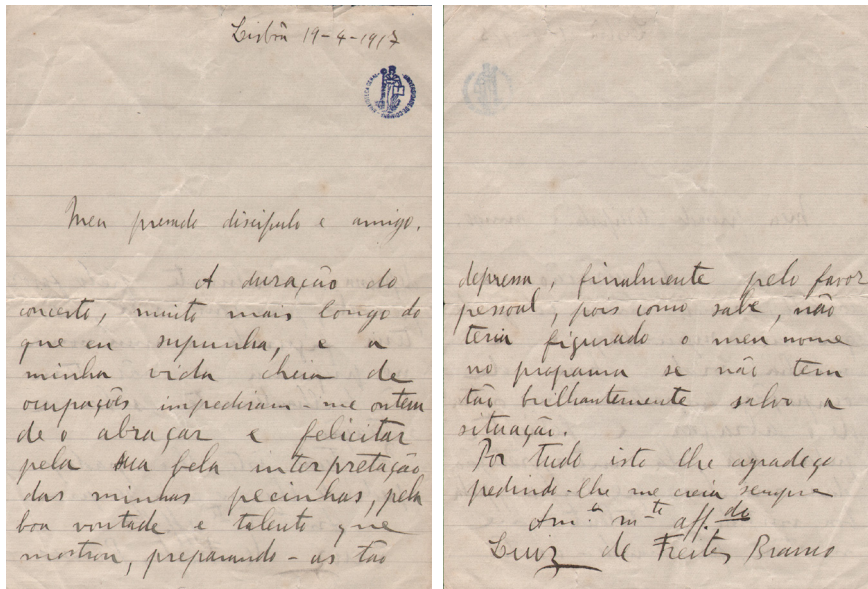 Lisbôa 19-4-1917
Meu presado discipulo e amigo.
A duração do
concerto, muito mais longo do
que eu supunha, e a
minha vida cheia de
ocupações impediram-me ontem
de o abraçar e felicitar
pela sua bela interpretação
das minhas pecinhas, pela
boa vontade e talento que
mostrou, preparando-as tão
depressa, finalmente pelo favor
pessoal, pois como sabe, não
teria figurado o meu nome
no programa se não tem
tão brilhantemente salvo a
situação.
Por tudo isto lhe agradeço
pedindo-lhe me creia sempre
Am.º m.to aff.do
Luiz de Freitas Branco